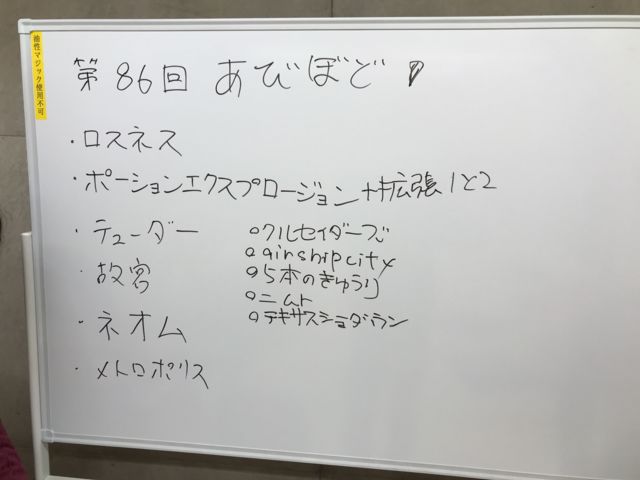 油性マジック使用不可
第86回 あびぼど
・ロスネス
・ポーションエクスプロージョン+拡張1と2
・テューダー
・故宮
・ネオム
・メトロポリス
○クルセイダーズ
○airshipcity
○5本のきゅうり
○ニムト
○テキサスショーダウン